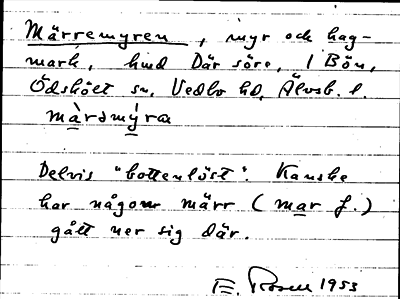 Märremyren, myr och hag-
mark, hmd Där söre, 1 Bön,
Ödskölt sn. Vedbo hd, Älvsb. l.
màrəmy̆ra
Delvis "bottenlöst". Kanske
har någon märr (mar f.)
gått ner sig där.
E. Rosell 1953